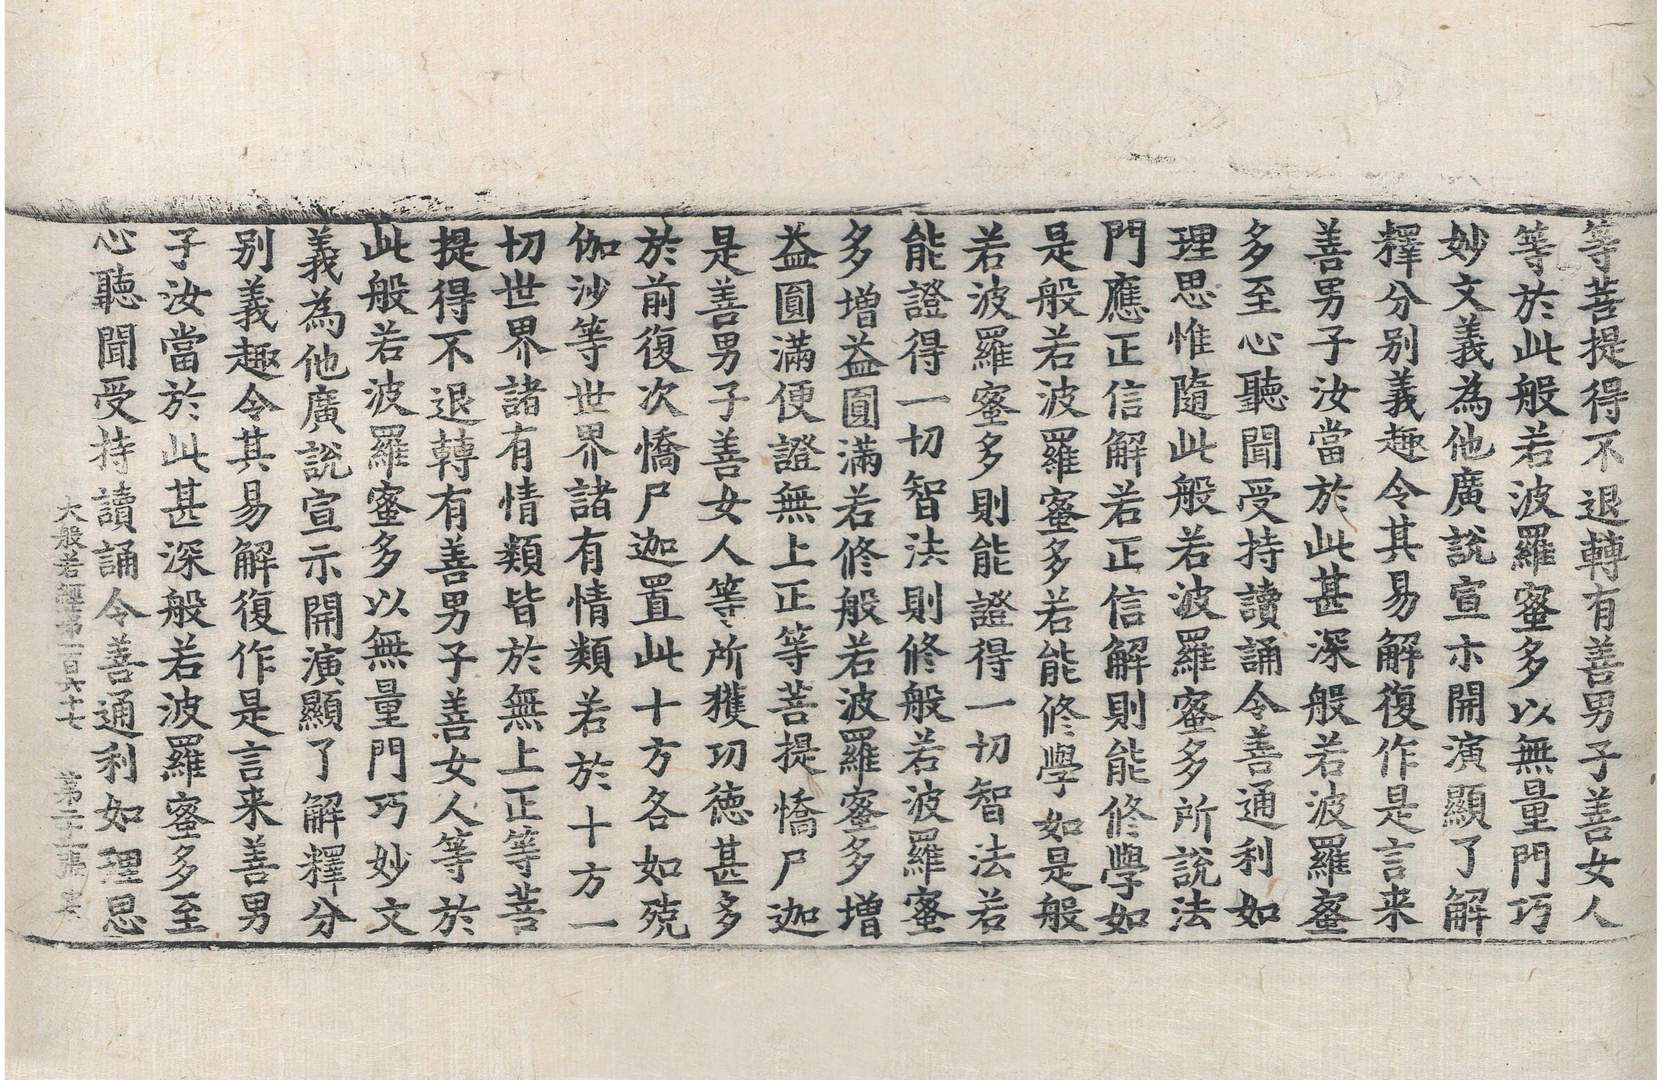 等菩提得不退轉有善男子善女人
等於此般若波羅蜜多以無量門巧
妙文義為他廣說宣示開演顯了解
釋分別義趣令其易解復作是言来
善男子汝當於此甚深般若波羅蜜
多至心聽聞受持讀誦令善通利如
理思惟隨此般若波羅蜜多所說法
門應正信解若正信解則能修學如
是般若波羅蜜多若能修學如是般
若波羅蜜多則能證得一切智法若
能證得一切智法則修般若波羅蜜
多增益圓滿若修般若波羅蜜多增
益圓滿便證無上正等菩提憍尸迦
是善男子善女人等所獲功德甚多
於前復次憍尸迦置此十方各如殑
伽沙等世界諸有情類若於十方一
切世界諸有情類皆於無上正等菩
提得不退轉有善男子善女人等於
此般若波羅蜜多以無量門巧妙文
義為他廣說宣示開演顯了解釋分
別義趣令其易解復作是言来善男
子汝當於此甚深般若波羅蜜多至
心聽聞受持讀誦令善通利如理思
大般若經第一百六十七 第二十張